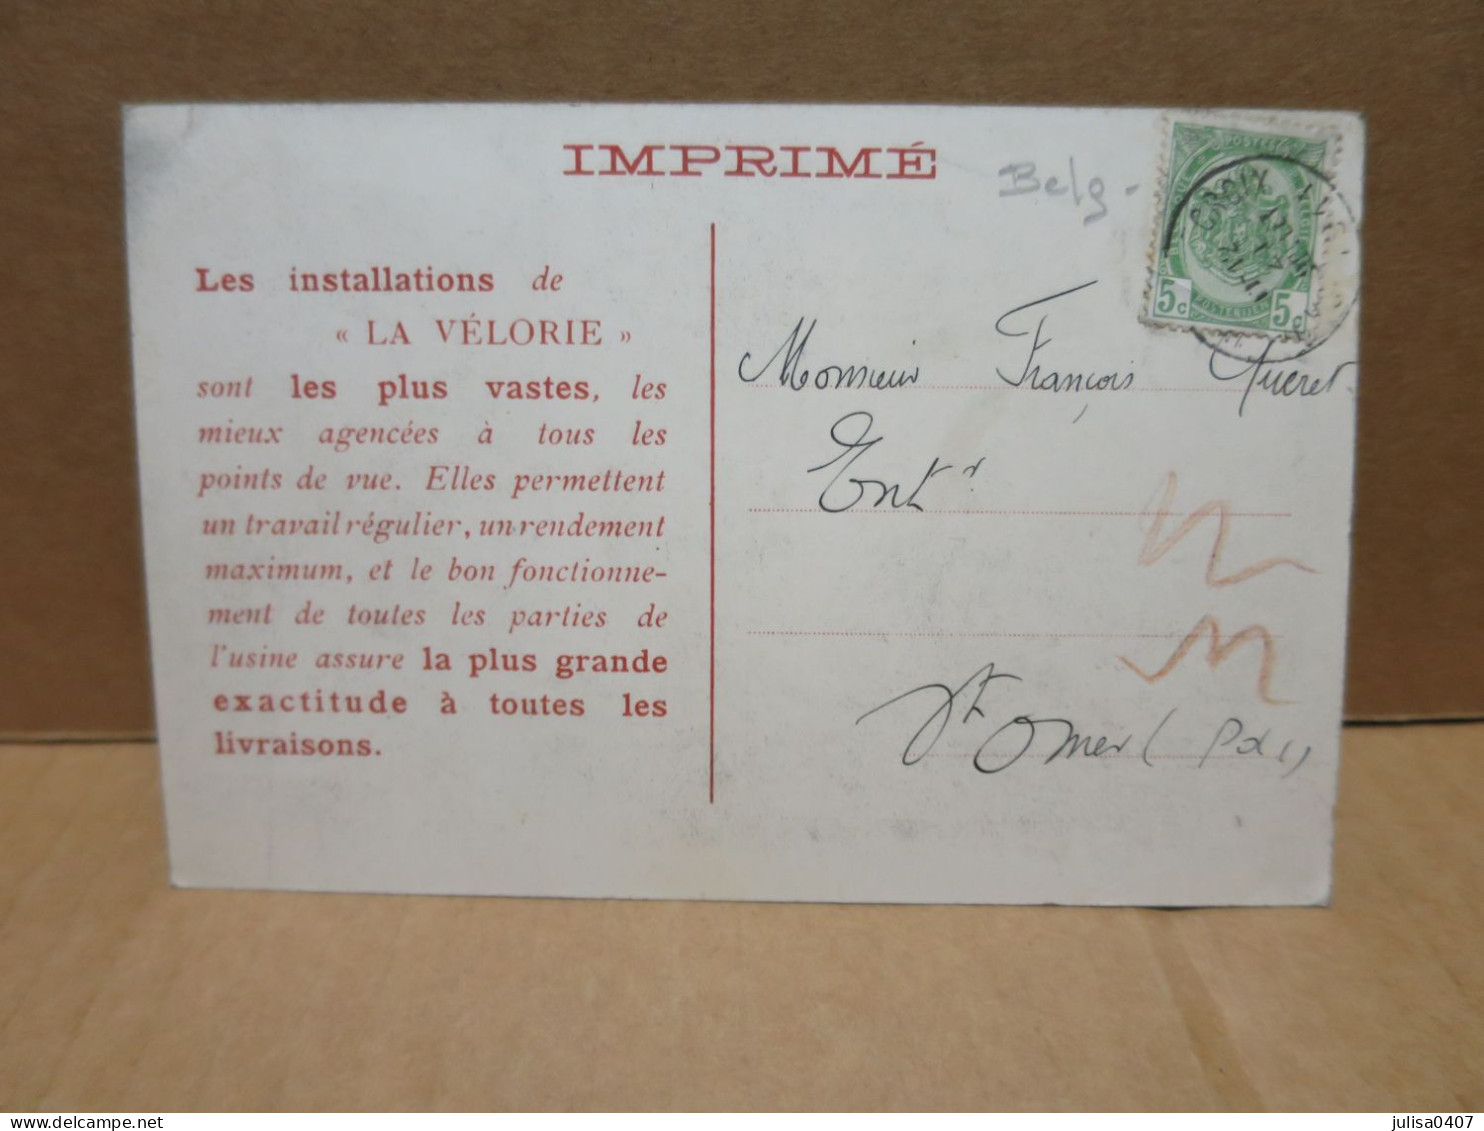 IMPRIMÉ
Belg-
POSTES
5c POSTERIJEN 5c
CROIX
Les installations de
« LA VÉLORIE »
sont les plus vastes, les
mieux agencées à tous les
points de vue. Elles permettent
un travail régulier, un rendement
maximum, et le bon fonctionne-
ment de toutes les parties de
l'usine assure la plus grande
exactitude à toutes les
livraisons.
Monsieur François Queret
Entr
St Omer (Pd
julisa0407